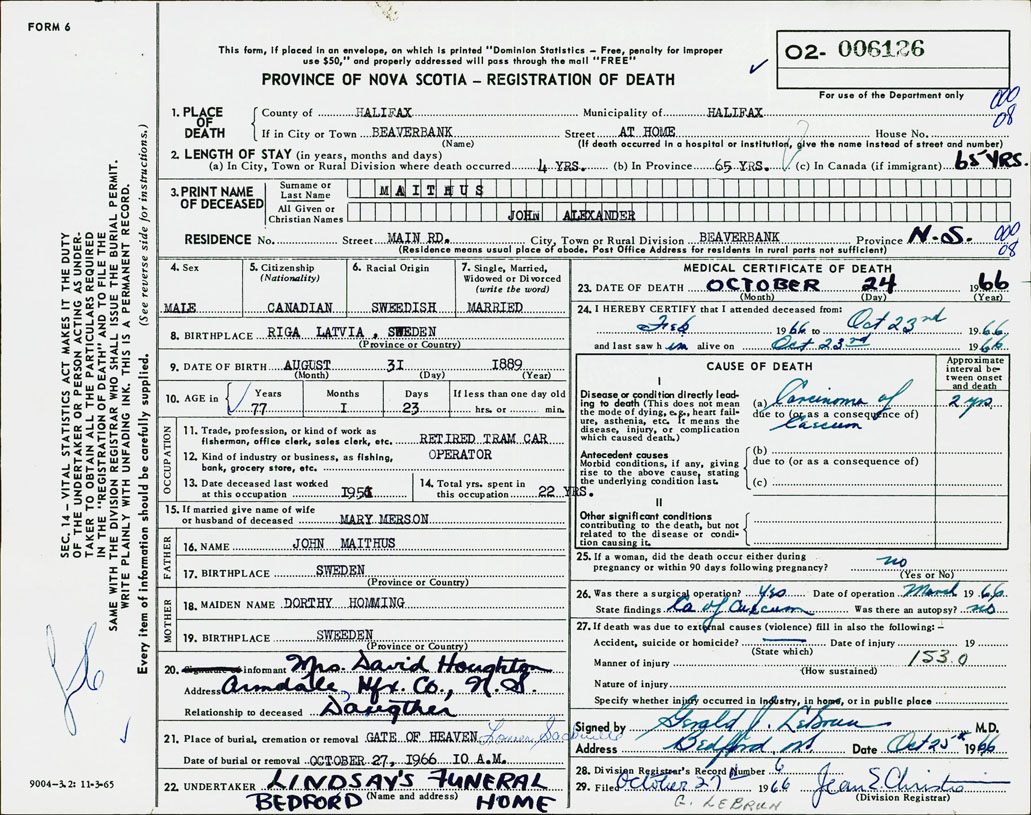 FORM 6
This form, if placed in an envelope, on which is printed "Dominion Statistics – Free, penalty for improper
use $50," and properly addressed will pass through the mail "FREE"
O2- 006126
PROVINCE OF NOVA SCOTIA – REGISTRATION OF DEATH
For use of the Department only
000
08
1. PLACE OF DEATH
County of HALIFAX Municipality of HALIFAX
If in City or Town BEAVERBANK Street AT HOME House No.
(Name) (If death occurred in a hospital or institution, give the name instead of street and number)
2. LENGTH OF STAY (in years, months and days)
(a) In City, Town or Rural Division where death occurred 4 YRS. (b) In Province 65 YRS. (c) In Canada (if immigrant) 65 YRS.
3. PRINT NAME OF DECEASED
Surname or Last Name MAITHUS
All Given or Christian Names JOHN ALEXANDER
RESIDENCE No. Street MAIN RD. City, Town or Rural Division BEAVERBANK Province N.S.
000
08
(Residence means usual place of abode. Post Office Address for residents in rural parts not sufficient)
4. Sex 5. Citizenship (Nationality) 6. Racial Origin 7. Single, Married, Widowed or Divorced (write the word)
MALE CANADIAN SWEDISH MARRIED
8. BIRTHPLACE RIGA LATVIA, SWEDEN
(Province or Country)
9. DATE OF BIRTH AUGUST 31 1889
(Month) (Day) (Year)
10. AGE in Years Months Days If less than one day old
77 I 23 hrs. or min.
OCCUPATION
11. Trade, profession, or kind of work as
fisherman, office clerk, sales clerk, etc. RETIRED TRAM CAR
12. Kind of industry or business, as fishing, OPERATOR
bank, grocery store, etc.
13. Date deceased last worked
at this occupation
14. Total yrs. spent in
this occupation 22 YRS.
15. If married give name of wife
or husband of deceased MARY MERSON
FATHER
16. NAME JOHN MAITHUS
17. BIRTHPLACE SWEDEN
(Province or Country)
MOTHER
18. MAIDEN NAME DORTHY HOMMING
19. BIRTHPLACE SWEDEN
(Province or Country)
20. informant Mrs. David Houghton
Address Armdale, Hfx. Co., N.S.
Relationship to deceased Daugther
21. Place of burial, cremation or removal GATE OF HEAVEN Lower Sackville
Date of burial or removal OCTOBER 27, 1966 10 A.M.
22. UNDERTAKER LINDSAY'S FUNERAL
BEDFORD (Name and address) HOME
MEDICAL CERTIFICATE OF DEATH
23. DATE OF DEATH OCTOBER 24 1966
(Month) (Day) (Year)
24. I HEREBY CERTIFY that I attended deceased from:
Feb 1966 to Oct 23rd 1966
and last saw h im alive on Oct 23rd 1966
CAUSE OF DEATH
Approximate interval between onset and death
I
Disease or condition directly leading to death (This does not mean
the mode of dying, e.g., heart failure, asthenia, etc. It means the
disease, injury, or complication
which caused death.)
(a) Carcinoma of 2 yrs
due to (or as a consequence of)
Caecum
Antecedent causes
Morbid conditions, if any, giving
rise to the above cause, stating
the underlying condition last.
(b)
due to (or as a consequence of)
(c)
II
Other significant conditions
contributing to the death, but not
related to the disease or condition causing it.
25. If a woman, did the death occur either during
pregnancy or within 90 days following pregnancy? no
(Yes or No)
26. Was there a surgical operation? yes Date of operation March 1966
State findings Ca of Caecum Was there an autopsy? no
27. If death was due to external causes (violence) fill in also the following: –
Accident, suicide or homicide? Date of injury 19
(State which)
Manner of injury 153.0
(How sustained)
Nature of injury
Specify whether injury occurred in industry, in home, or in public place
Signed by Gerald J. LeBrun M.D.
Address Bedford NS Date Oct 25th 1966
28. Division Registrar's Record Number 6
29. Filed October 27th 1966 Jean E Christie
G. LEBRUN (Division Registrar)
SEC. 14 – VITAL STATISTICS ACT MAKES IT THE DUTY
OF THE UNDERTAKER OR PERSON ACTING AS UNDERTAKER TO OBTAIN ALL THE PARTICULARS REQUIRED
IN THE "REGISTRATION OF DEATH" AND TO FILE THE
SAME WITH THE DIVISION REGISTRAR WHO SHALL ISSUE THE BURIAL PERMIT.
WRITE PLAINLY WITH UNFADING INK. THIS IS A PERMANENT RECORD.
Every item of information should be carefully supplied. (See reverse side for instructions.)
9004-3.2: 11-3-65